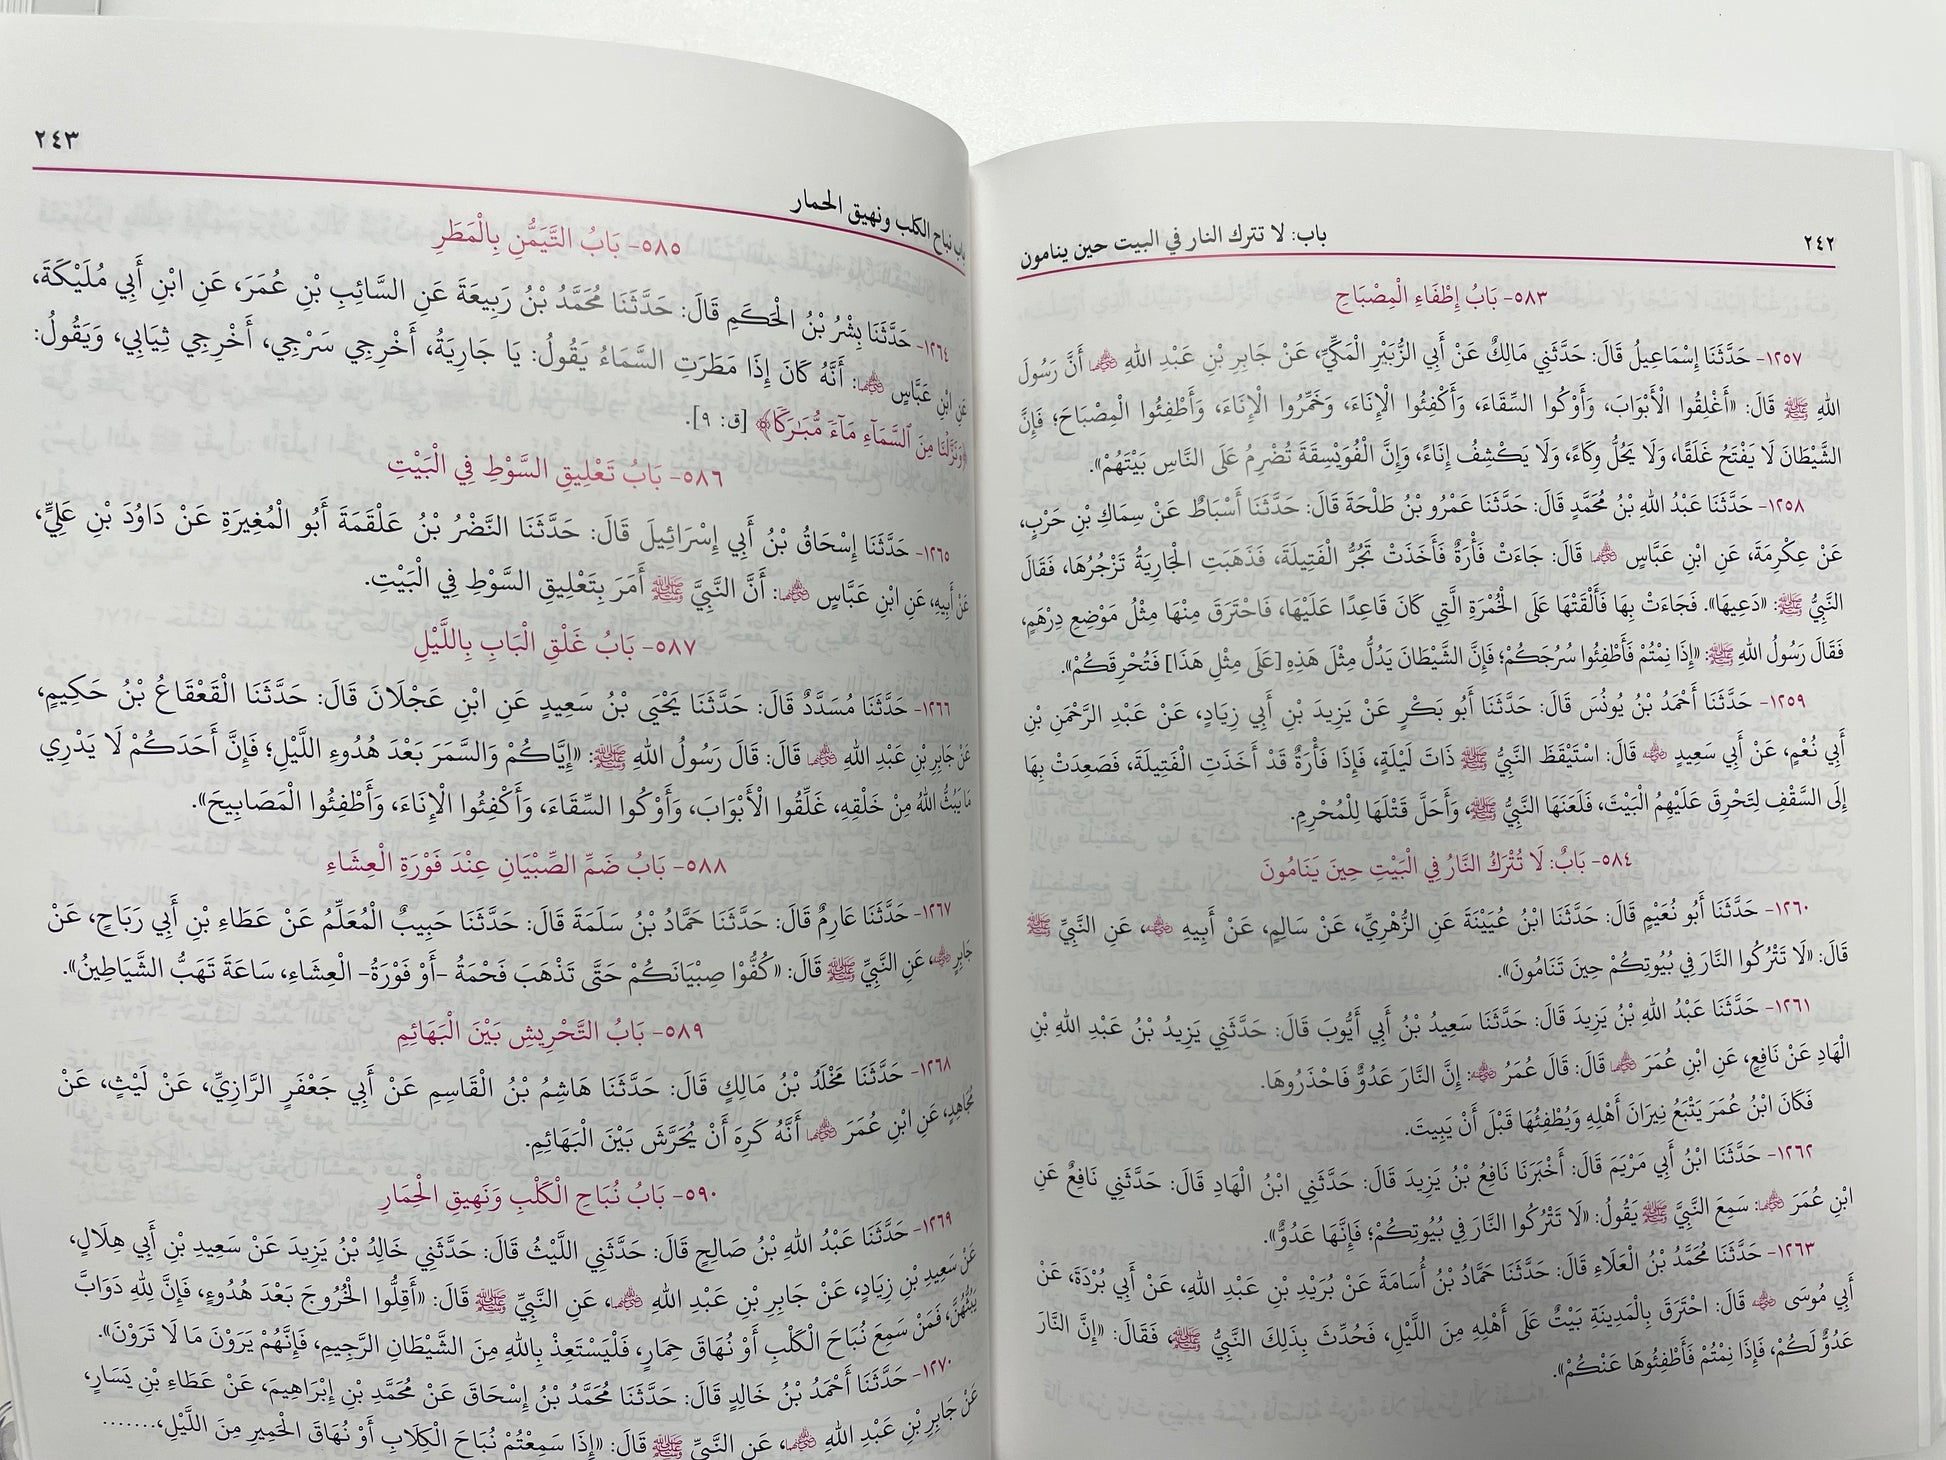 ٢٤٢
باب: لا تترك النار في البيت حين ينامون
٥٨٣- بَابُ إِطْفَاءِ الْمِصْبَاحِ
١٢٥٧- حَدَّثَنَا إِسْمَاعِيلُ قَالَ: حَدَّثَنِي مَالِكٌ عَنْ أَبِي الزُّبَيْرِ الْمَكِّيِّ، عَنْ جَابِرِ بْنِ عَبْدِ اللهِ ﵄ أَنَّ رَسُولَ
اللهِ ﷺ قَالَ: «أَغْلِقُوا الْأَبْوَابَ، وَأَوْكُوا السِّقَاءَ، وَأَكْفِئُوا الْإِنَاءَ، وَخَمِّرُوا الْإِنَاءَ، وَأَطْفِئُوا الْمِصْبَاحَ؛ فَإِنَّ
الشَّيْطَانَ لَا يَفْتَحُ غَلَقًا، وَلَا يَحُلُّ وِكَاءً، وَلَا يَكْشِفُ إِنَاءً، وَإِنَّ الْفُوَيْسِقَةَ تُضْرِمُ عَلَى النَّاسِ بَيْتَهُمْ».
١٢٥٨- حَدَّثَنَا عَبْدُ اللهِ بْنُ مُحَمَّدٍ قَالَ: حَدَّثَنَا عَمْرُو بْنُ طَلْحَةَ قَالَ: حَدَّثَنَا أَسْبَاطٌ عَنْ سِمَاكِ بْنِ حَرْبٍ،
عَنْ عِكْرِمَةَ، عَنِ ابْنِ عَبَّاسٍ ﵄ قَالَ: جَاءَتْ فَأْرَةٌ فَأَخَذَتْ تَجُرُّ الْفَتِيلَةَ، فَذَهَبَتِ الْجَارِيَةُ تَزْجُرُهَا، فَقَالَ
النَّبِيُّ ﷺ: «دَعِيهَا». فَجَاءَتْ بِهَا فَأَلْقَتْهَا عَلَى الْخُمْرَةِ الَّتِي كَانَ قَاعِدًا عَلَيْهَا، فَاحْتَرَقَ مِنْهَا مِثْلُ مَوْضِعِ دِرْهَمٍ،
فَقَالَ رَسُولُ اللهِ ﷺ: «إِذَا نِمْتُمْ فَأَطْفِئُوا سُرُجَكُمْ؛ فَإِنَّ الشَّيْطَانَ يَدُلُّ مِثْلَ هَذِهِ [عَلَى مِثْلِ هَذَا] فَتُحْرِقَكُمْ».
١٢٥٩- حَدَّثَنَا أَحْمَدُ بْنُ يُونُسَ قَالَ: حَدَّثَنَا أَبُو بَكْرٍ عَنْ يَزِيدَ بْنِ أَبِي زِيَادٍ، عَنْ عَبْدِ الرَّحْمَنِ بْنِ
أَبِي نُعْمٍ، عَنْ أَبِي سَعِيدٍ ﵁ قَالَ: اسْتَيْقَظَ النَّبِيُّ ﷺ ذَاتَ لَيْلَةٍ، فَإِذَا فَأْرَةٌ قَدْ أَخَذَتِ الْفَتِيلَةَ، فَصَعِدَتْ بِهَا
إِلَى السَّقْفِ لِتَحْرِقَ عَلَيْهِمُ الْبَيْتَ، فَلَعَنَهَا النَّبِيُّ ﷺ، وَأَحَلَّ قَتْلَهَا لِلْمُحْرِمِ.
٥٨٤- بَابٌ: لَا تُتْرَكُ النَّارُ فِي الْبَيْتِ حِينَ يَنَامُونَ
١٢٦٠- حَدَّثَنَا أَبُو نُعَيْمٍ قَالَ: حَدَّثَنَا ابْنُ عُيَيْنَةَ عَنِ الزُّهْرِيِّ، عَنْ سَالِمٍ، عَنْ أَبِيهِ ﵁، عَنِ النَّبِيِّ ﷺ
قَالَ: «لَا تَتْرُكُوا النَّارَ فِي بُيُوتِكُمْ حِينَ تَنَامُونَ».
١٢٦١- حَدَّثَنَا عَبْدُ اللهِ بْنُ يَزِيدَ قَالَ: حَدَّثَنَا سَعِيدُ بْنُ أَبِي أَيُّوبَ قَالَ: حَدَّثَنِي يَزِيدُ بْنُ عَبْدِ اللهِ بْنِ
الْهَادِ عَنْ نَافِعٍ، عَنِ ابْنِ عُمَرَ ﵄ قَالَ: قَالَ عُمَرُ ﵁: إِنَّ النَّارَ عَدُوٌّ فَاحْذَرُوهَا.
فَكَانَ ابْنُ عُمَرَ يَتْبَعُ نِيرَانَ أَهْلِهِ وَيُطْفِئُهَا قَبْلَ أَنْ يَبِيتَ.
١٢٦٢- حَدَّثَنَا ابْنُ أَبِي مَرْيَمَ قَالَ: أَخْبَرَنَا نَافِعُ بْنُ يَزِيدَ قَالَ: حَدَّثَنِي ابْنُ الْهَادِ قَالَ: حَدَّثَنِي نَافِعٌ عَنِ
ابْنِ عُمَرَ ﵄: سَمِعَ النَّبِيَّ ﷺ يَقُولُ: «لَا تَتْرُكُوا النَّارَ فِي بُيُوتِكُمْ؛ فَإِنَّهَا عَدُوٌّ».
١٢٦٣- حَدَّثَنَا مُحَمَّدُ بْنُ الْعَلَاءِ قَالَ: حَدَّثَنَا حَمَّادُ بْنُ أُسَامَةَ عَنْ بُرَيْدِ بْنِ عَبْدِ اللهِ، عَنْ أَبِي بُرْدَةَ، عَنْ
أَبِي مُوسَى ﵁ قَالَ: احْتَرَقَ بِالْمَدِينَةِ بَيْتٌ عَلَى أَهْلِهِ مِنَ اللَّيْلِ، فَحُدِّثَ بِذَلِكَ النَّبِيُّ ﷺ، فَقَالَ: «إِنَّ النَّارَ
عَدُوٌّ لَكُمْ، فَإِذَا نِمْتُمْ فَأَطْفِئُوهَا عَنْكُمْ».
باب نباح الكلب ونهيق الحمار
٢٤٣
٥٨٥- بَابُ التَّيَمُّنِ بِالْمَطَرِ
١٢٦٤- حَدَّثَنَا بِشْرُ بْنُ الْحَكَمِ قَالَ: حَدَّثَنَا مُحَمَّدُ بْنُ رَبِيعَةَ عَنِ السَّائِبِ بْنِ عُمَرَ، عَنِ ابْنِ أَبِي مُلَيْكَةَ،
عَنِ ابْنِ عَبَّاسٍ ﵄: أَنَّهُ كَانَ إِذَا مَطَرَتِ السَّمَاءُ يَقُولُ: يَا جَارِيَةُ، أَخْرِجِي سَرْجِي، أَخْرِجِي ثِيَابِي، وَيَقُولُ:
﴿وَنَزَّلْنَا مِنَ ٱلسَّمَآءِ مَآءً مُّبَٰرَكًا﴾ [ق: ٩].
٥٨٦- بَابُ تَعْلِيقِ السَّوْطِ فِي الْبَيْتِ
١٢٦٥- حَدَّثَنَا إِسْحَاقُ بْنُ أَبِي إِسْرَائِيلَ قَالَ: حَدَّثَنَا النَّضْرُ بْنُ عَلْقَمَةَ أَبُو الْمُغِيرَةِ عَنْ دَاوُدَ بْنِ عَلِيٍّ،
عَنْ أَبِيهِ، عَنِ ابْنِ عَبَّاسٍ ﵄: أَنَّ النَّبِيَّ ﷺ أَمَرَ بِتَعْلِيقِ السَّوْطِ فِي الْبَيْتِ.
٥٨٧- بَابُ غَلْقِ الْبَابِ بِاللَّيْلِ
١٢٦٦- حَدَّثَنَا مُسَدَّدٌ قَالَ: حَدَّثَنَا يَحْيَى بْنُ سَعِيدٍ عَنِ ابْنِ عَجْلَانَ قَالَ: حَدَّثَنَا الْقَعْقَاعُ بْنُ حَكِيمٍ،
عَنْ جَابِرِ بْنِ عَبْدِ اللهِ ﵄ قَالَ: قَالَ رَسُولُ اللهِ ﷺ: «إِيَّاكُمْ وَالسَّمَرَ بَعْدَ هُدُوءِ اللَّيْلِ؛ فَإِنَّ أَحَدَكُمْ لَا يَدْرِي
مَا يَبُثُّ اللهُ مِنْ خَلْقِهِ، غَلِّقُوا الْأَبْوَابَ، وَأَوْكُوا السِّقَاءَ، وَأَكْفِئُوا الْإِنَاءَ، وَأَطْفِئُوا الْمَصَابِيحَ».
٥٨٨- بَابُ ضَمِّ الصِّبْيَانِ عِنْدَ فَوْرَةِ الْعِشَاءِ
١٢٦٧- حَدَّثَنَا عَارِمٌ قَالَ: حَدَّثَنَا حَمَّادُ بْنُ سَلَمَةَ قَالَ: حَدَّثَنَا حَبِيبٌ الْمُعَلِّمُ عَنْ عَطَاءِ بْنِ أَبِي رَبَاحٍ، عَنْ
جَابِرٍ ﵁، عَنِ النَّبِيِّ ﷺ قَالَ: «كُفُّوْا صِبْيَانَكُمْ حَتَّى تَذْهَبَ فَحْمَةُ -أَوْ فَوْرَةُ- الْعِشَاءِ، سَاعَةَ تَهَبُّ الشَّيَاطِينُ».
٥٨٩- بَابُ التَّحْرِيشِ بَيْنَ الْبَهَائِمِ
١٢٦٨- حَدَّثَنَا مَخْلَدُ بْنُ مَالِكٍ قَالَ: حَدَّثَنَا هَاشِمُ بْنُ الْقَاسِمِ عَنْ أَبِي جَعْفَرٍ الرَّازِيِّ، عَنْ لَيْثٍ، عَنْ
مُجَاهِدٍ، عَنِ ابْنِ عُمَرَ ﵄ أَنَّهُ كَرِهَ أَنْ يُحَرَّشَ بَيْنَ الْبَهَائِمِ.
٥٩٠- بَابُ نُبَاحِ الْكَلْبِ وَنَهِيقِ الْحِمَارِ
١٢٦٩- حَدَّثَنَا عَبْدُ اللهِ بْنُ صَالِحٍ قَالَ: حَدَّثَنِي اللَّيْثُ قَالَ: حَدَّثَنِي خَالِدُ بْنُ يَزِيدَ عَنْ سَعِيدِ بْنِ أَبِي هِلَالٍ،
عَنْ سَعِيدِ بْنِ زِيَادٍ، عَنْ جَابِرِ بْنِ عَبْدِ اللهِ ﵄، عَنِ النَّبِيِّ ﷺ قَالَ: «أَقِلُّوا الْخُرُوجَ بَعْدَ هُدُوءٍ، فَإِنَّ لِلهِ دَوَابَّ
يَبُثُّهُنَّ، فَمَنْ سَمِعَ نُبَاحَ الْكَلْبِ أَوْ نُهَاقَ حِمَارٍ، فَلْيَسْتَعِذْ بِاللهِ مِنَ الشَّيْطَانِ الرَّجِيمِ، فَإِنَّهُمْ يَرَوْنَ مَا لَا تَرَوْنَ».
١٢٧٠- حَدَّثَنَا أَحْمَدُ بْنُ خَالِدٍ قَالَ: حَدَّثَنَا مُحَمَّدُ بْنُ إِسْحَاقَ عَنْ مُحَمَّدِ بْنِ إِبْرَاهِيمَ، عَنْ عَطَاءِ بْنِ يَسَارٍ،
عَنْ جَابِرِ بْنِ عَبْدِ اللهِ ﵄، عَنِ النَّبِيِّ ﷺ قَالَ: «إِذَا سَمِعْتُمْ نُبَاحَ الْكِلَابِ أَوْ نُهَاقَ الْحَمِيرِ مِنَ اللَّيْلِ،.......